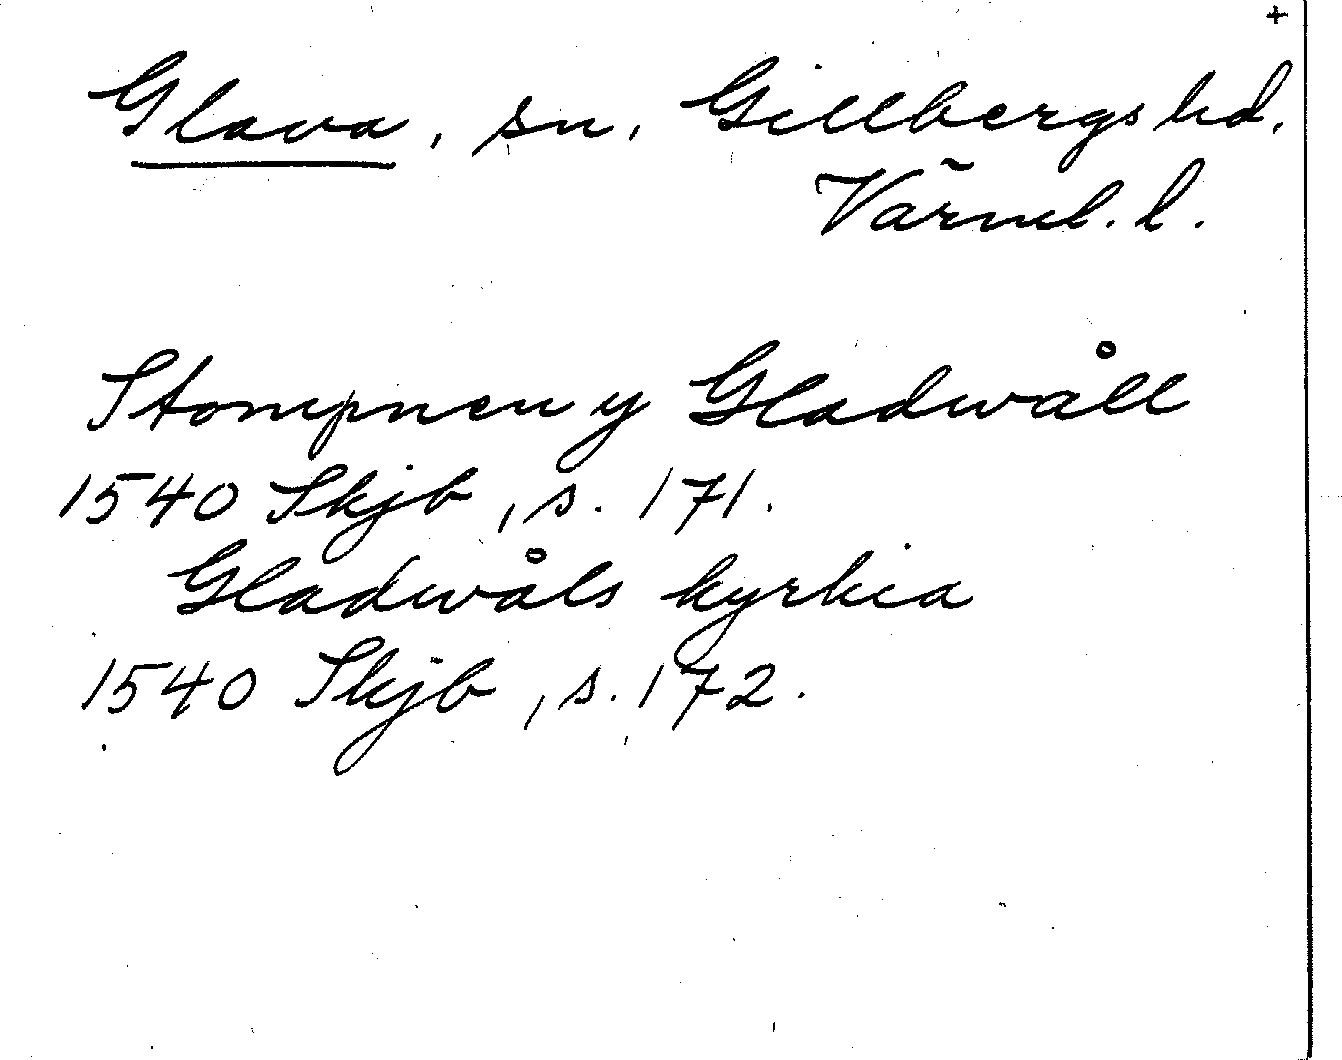 +
Glava, sn, Gillbergs hd,
Värml. l.
Stompnen y Gladwåll
1540 Skjb, s. 171.
Gladwåls kyrkia
1540 Skjb, s. 172.